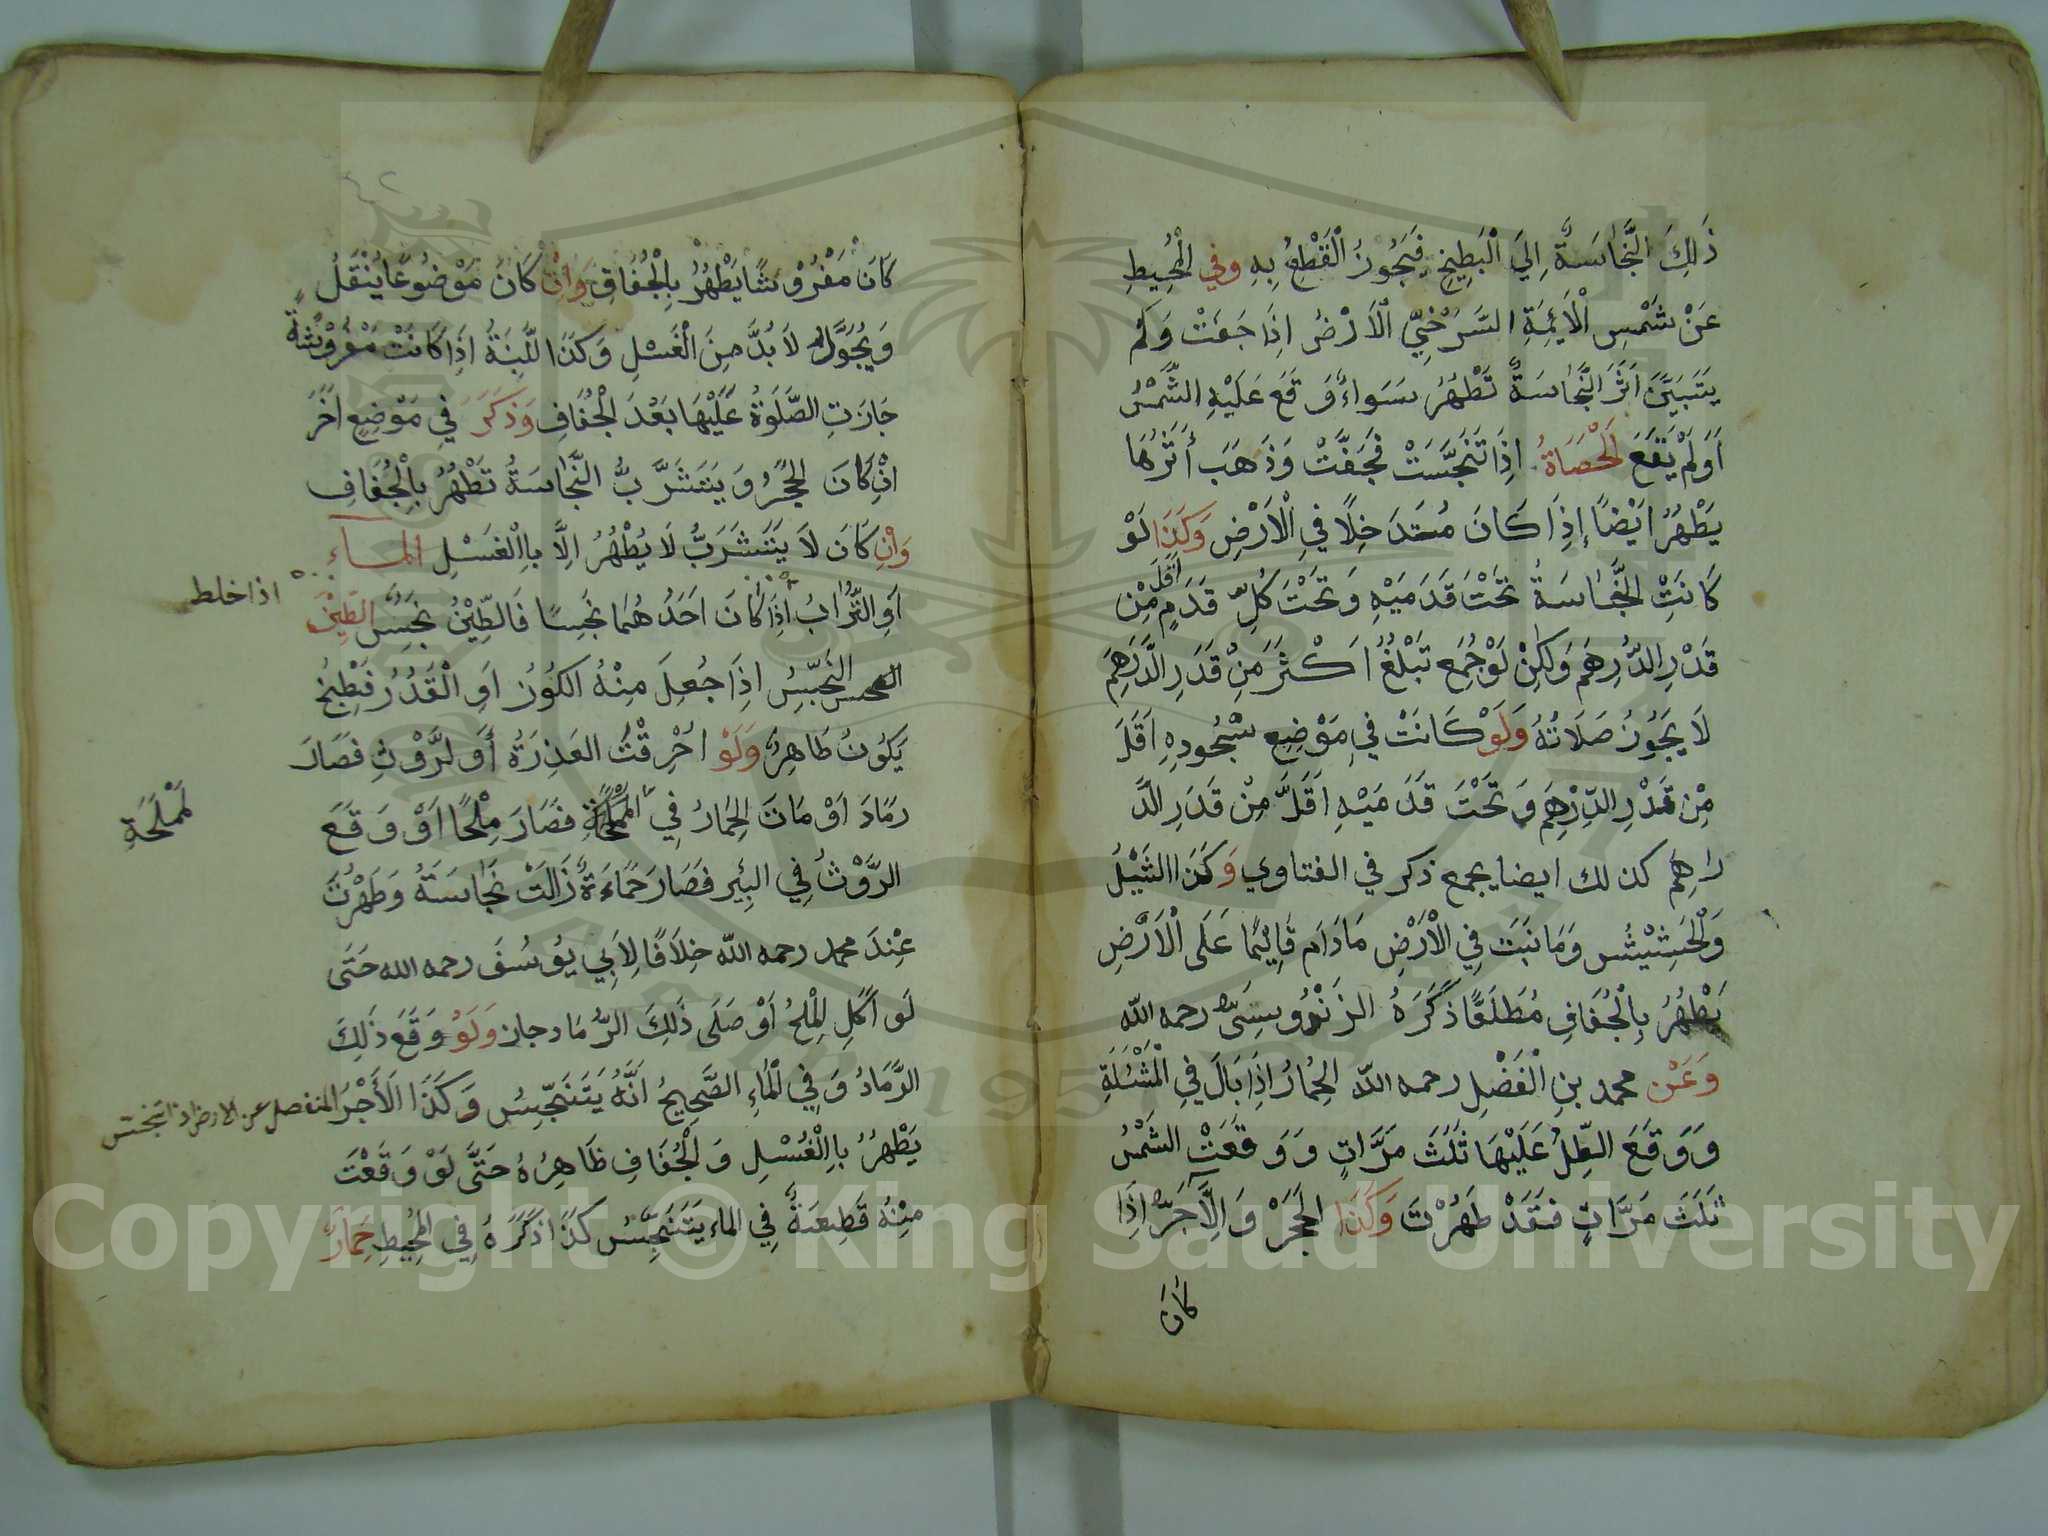 ذَلِكَ النَّجَاسَةُ اِلَي الْبَطِيخِ فَيَجُوزُ الْقَطْعُ بِهِ وفي الْمُحِيطِ
عَنْ شَمْسِ الْاَئِمَةِ السَّرَخْسِيِّ الْاَرْضُ اِذَا جَفَتْ وَلَمْ
يَتَبَيَّنَ اَثَرَ النَّجَاسَةُ تَطْهُرُ سَوَاءٌ وَقَعَ عَلَيْهِ الشَّمْسُ
اَوَلَمْ يَقَعَ لَحْصَاةُ اِذَا تَنَجَّسَتْ فَجَفَّتْ وَذَهَبَ أَثَرُهَا
يَطْهُرُ اَيْضًا إِذَا كَانَ مُتَدَخِلًا فِي الْاَرْضِ وَكَذَا لَوْ
كَانَتِ النَّجَاسَةُ تَحْتَ قَدَمَيْهِ وَتَحْتَ كُلِّ قَدَمٍ اَقَلَّ مِنْ
قَدْرِ الدِّرْهَمِ وَلَكِنْ لَوْ جُمِعَ تَبْلُغُ اَكْثَرَ مِنْ قَدَرِ الدَّرَهِمَ
لَا يَجُوزُ صَلَاتُهُ وَلَوْ كَانَتْ فِي مَوْضِعِ سُجُودِهِ اَقَلَّ
مِنْ قَدْرِ الدِّرْهَمِ وَتَحْتَ قَدَمَيْهِ اَقَلَّ مِنْ قَدَرِ الدَّ
رَاهِمِ كذلك ايضا يجمع ذكر في الفتاوي وَكَذَا الثَيْلُ
وَالْحَشِيْشُ وَمَا نَبَتَ فِي الْاَرْضِ مَادَامَ قَائِمًا عَلَى الْاَرْضِ
يَطْهُرُ بِالْجُفَافِ مُطْلَقًا ذَكَرَهُ الزَنْدُوسِتِيُّ رحمه الله
وَعَنْ محمد بنِ الْفَضْلِ رحمه اللّه الْحِمَارُ اِذَا بَالَ فِي الْمَشْئَلَةِ
وَوَقَعَ الظِّلُّ عَلَيْهَا ثَلَثَ مَرَّاتٍ وَوَقَعَتْ الشَمْسُ
ثَلَثَ مَرَّاتٍ فَقَدْ طَهُرَتْ وَكَذَا الحَجَرْ وَالْآجُرُّ اِذَا
كان
كَانَ مَفْرُوشًا يَطْهُرُ بِالْجُفَافِ وَاِنْ كَانَ مَوْضُوعًا يُنْقَلُ
وَيُحَوَّلُ لَا بُدَّ مِنَ الْغَسْلِ وَكَذَا اللَّبِنَةُ اِذَا كَانَتْ مَفْرُوْشَةً
جَازَتِ الصَّلَوةُ عَلَيْهَا بَعْدَ الْجُفَافِ وَذَكَرَ فِي مَوْضِعٍ اٰخَرَ
اِنْ كَانَ الْحَجَرُ وَيَتَشَرَّبُ النَّجَاسَةُ تَطْهُرُ بِالْجُفَافِ
وَاِنْ كَانَ لَا يَتَشَرَبُّ لَا يُطْهُرُ اِلَّا بِاالْغَسْلِ المآء
اَوِ التُّرَابُ اِذَا كَانَ اَحَدُهُمَا نَجِسًا فَالطِّيْنُ نَجِسٌ الطِيْنُ
اذا خلط
النَجِّسِ اِذَا جُعِلَ مِنْهُ الكُوْزُ اَوِ الْقَدُرُ فَطُبِخَ
يَكُوْنُ طَاهِرًا وَلَوْ اُحْرِقَتْ العَذِرَةُ أَوَ لرَّوْثِ فَصَارَ
رَمَادَ اَوْ مَاتَ الْحِمَارُ فِي الْمَمْلَحَةِ فَصَارَ مِلْحًا اَوْ وَقَعَ
لَمْلَحَةِ
الرَّوْثُ فِي البِئِرِ فَصَارَ حَمَاءَةٌ زَالَتْ نَجَاسَتَهُ وَطَهُرْتَ
عِنْدَ محمد رحمه اللّه خِلَافًا لِاَبِي يُوسُفَ رحمه الله حَتَى
لَوْ اَكَلَ الْمِلْحُ اَوْ صَلَى ذَلِكَ الرَّمَاد جاز وَلَوْ وَقَعَ ذَلِكَ
الرَّمَادُ وَفِي الْمَاءِ الصَّحِيحُ اَنَّهُ يَتَنَجِّسُ وَكَذَا الْاَجُرُ المنفصل عن الارض اذا تنجست
يَطْهُرُ بِاالْغُسْلِ وَالْجُفَافِ ظَاهِرُهُ حَتَّى لَوْ وَقَعْتَ
مِنْهُ قَطِيعَةُ فِي الماء يَتَنَجَّسُ كذَا ذَكَرَهُ فِي الْمُحِيطِ حِمَارٌ
Copyright © King Saud University
1957